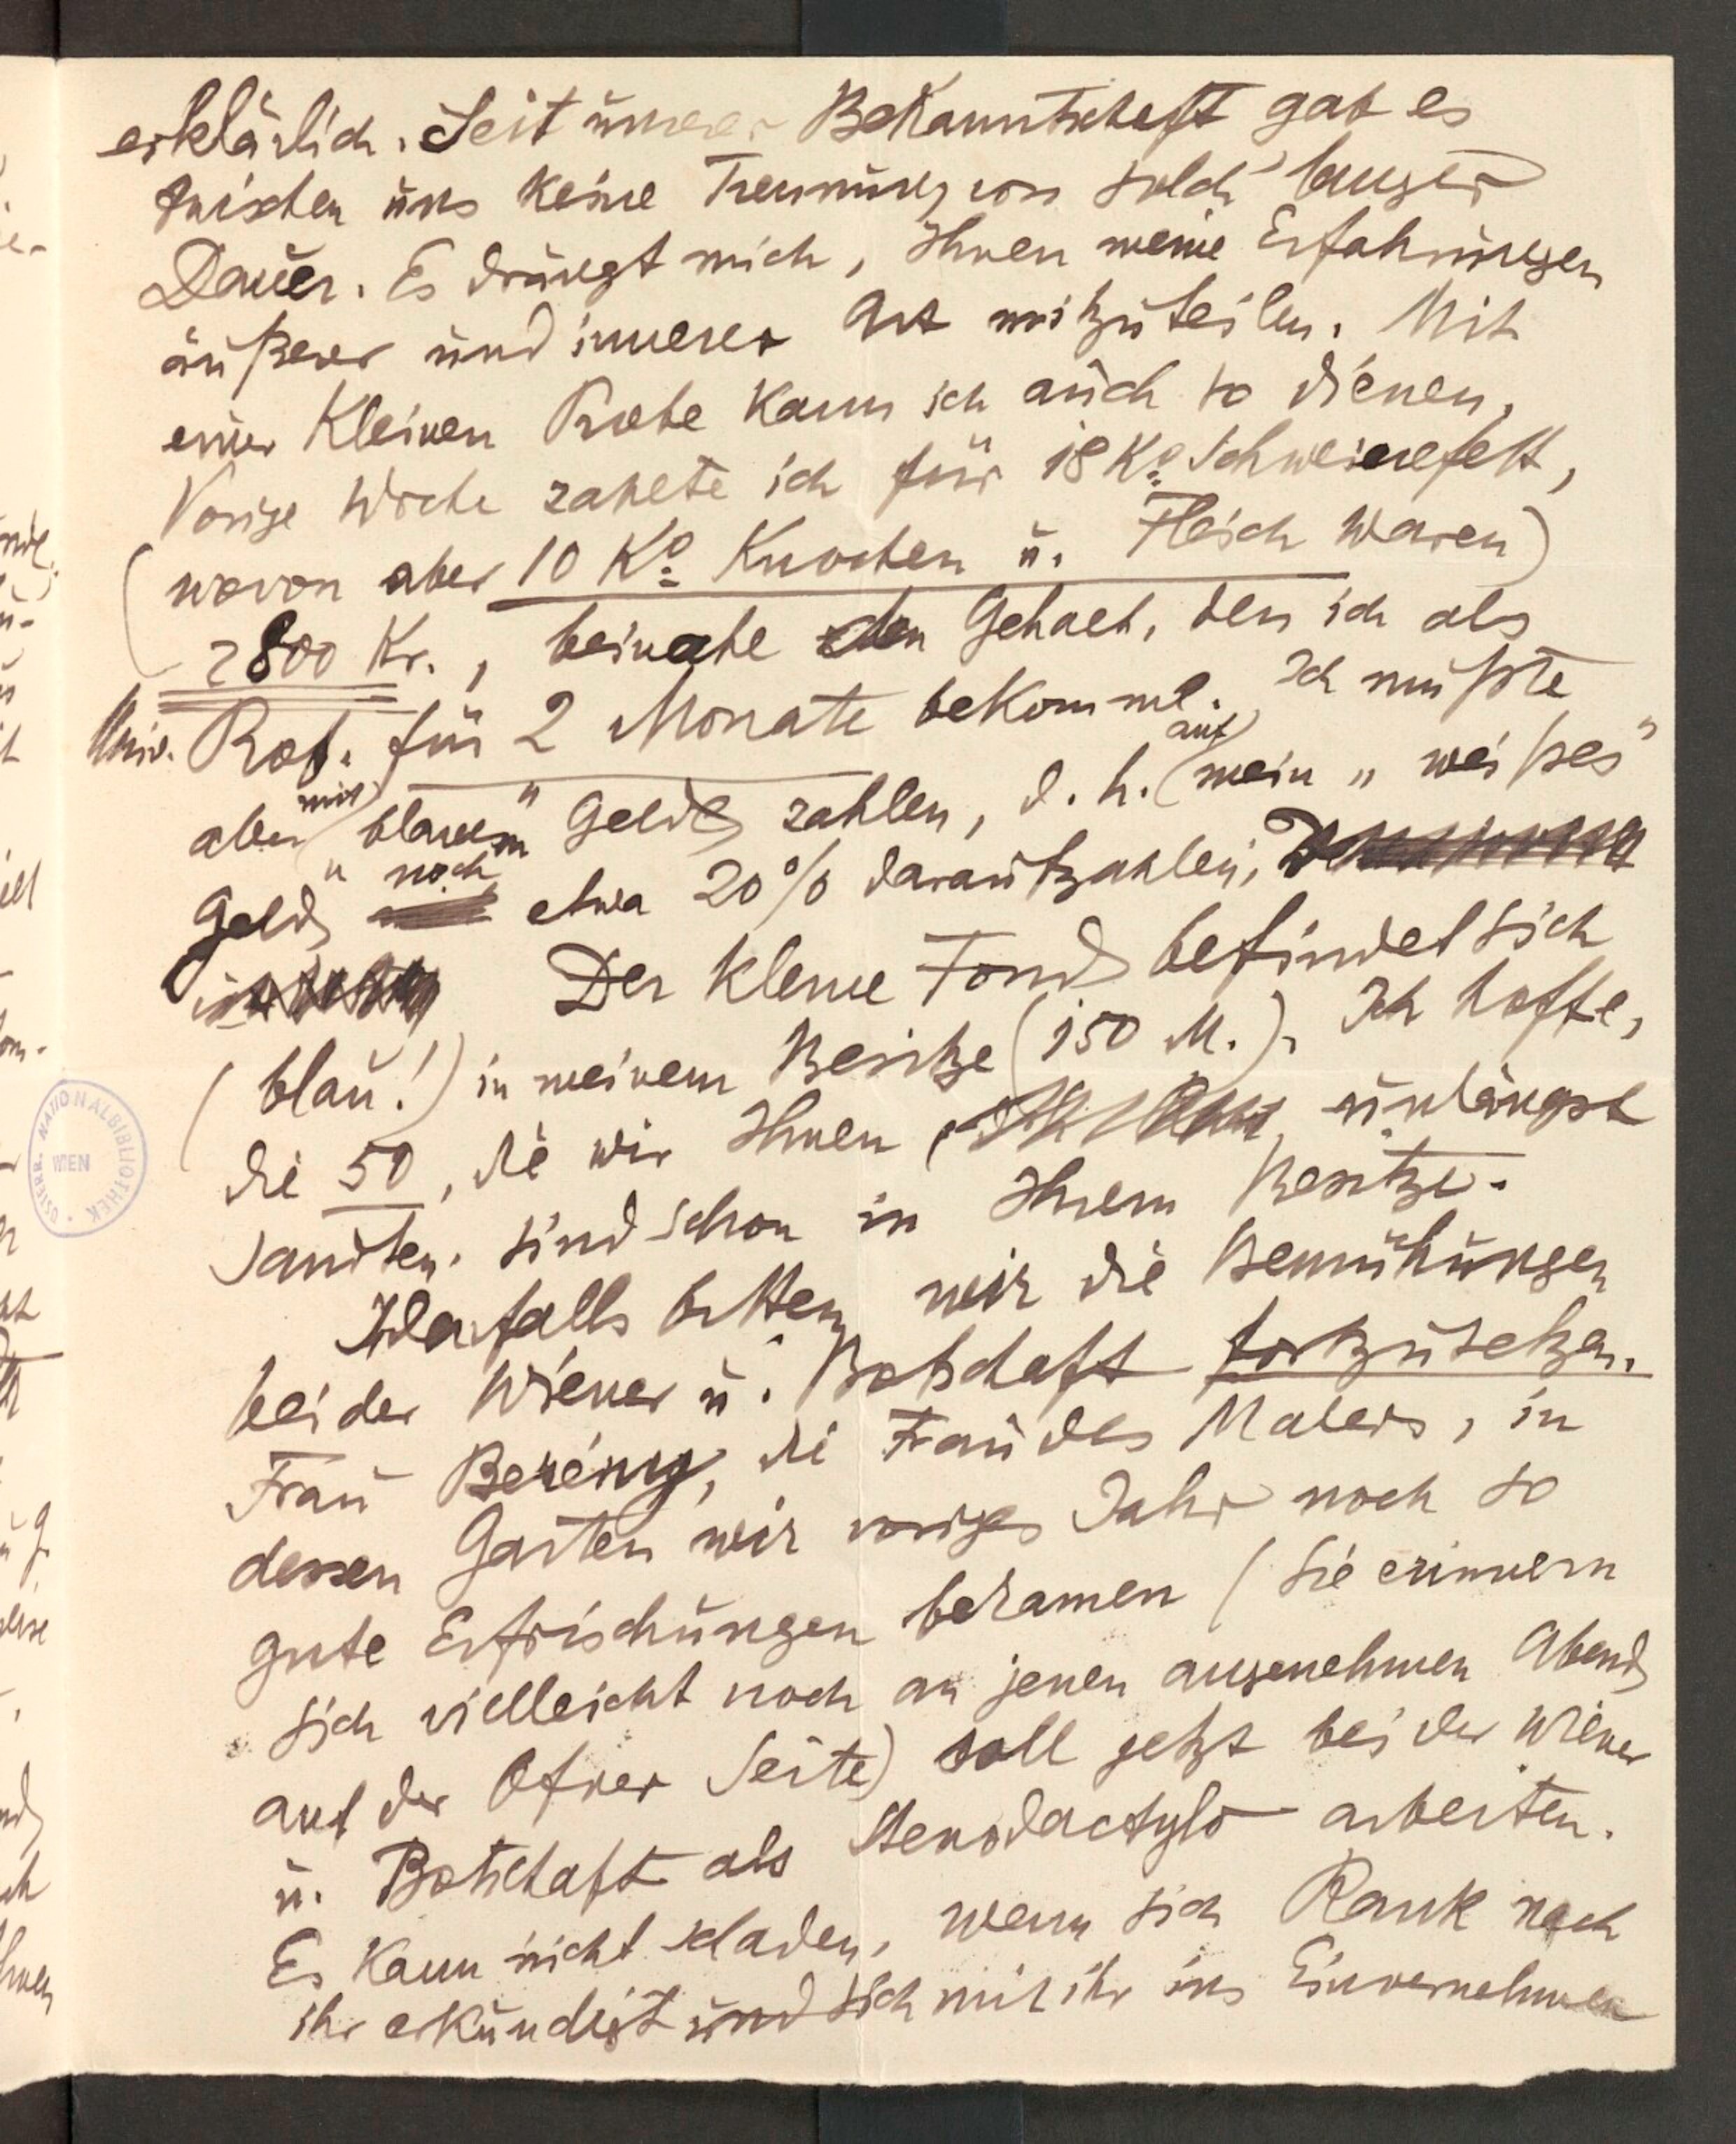 erklärlich. Seit unserer Bekanntschaft gab es
zwischen uns keine Trennung von solch' langer
Dauer. Es drängt mich, Ihnen meine Erfahrungen
äußerer und innerer Art mitzuteilen. Mit
einer Kleinen Probe kann ich auch so dienen.
Vorige Woche zahlte ich für 18 Ko Schweinefett,
(wovon aber 10 Ko Knochen u. Fleisch waren)
2800 Kr., beinahe den Gehalt, den ich als
Univ. Prof. für 2 Monate bekomme. Ich mußte
aber mit „blauem“ Gelde zahlen, d. h. auf mein „weißes“
Geld noch etwa 20% daraufzahlen.
Der kleine Fond befindet sich
(blau!) in meinem Besitze (150 M.). Ich hoffe,
die 50, die wir Ihnen unlängst
sandten, sind schon in Ihrem Besitze.
Jedenfalls bitten wir die Bemühungen
bei der Wiener u. Botschaft fortzusetzen.
Frau Berény, die Frau des Malers, in
dessen Garten wir voriges Jahr noch so
gute Erfrischungen bekamen (Sie erinnern
sich vielleicht noch an jenen angenehmen Abend
auf der Ofner Seite) soll jetzt bei der Wiener
u. Botschaft als Stenodactylo arbeiten.
Es kann nicht schaden, wenn sich Rank nach
ihr erkundigt und sich mit ihr ins Einvernehmen
ÖSTERR. NATIONALBIBLIOTHEK
WIEN